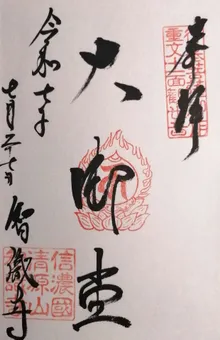 奉拝
大御堂
令和七年
七月二十七日
智識寺
信濃國
清源山
智識寺